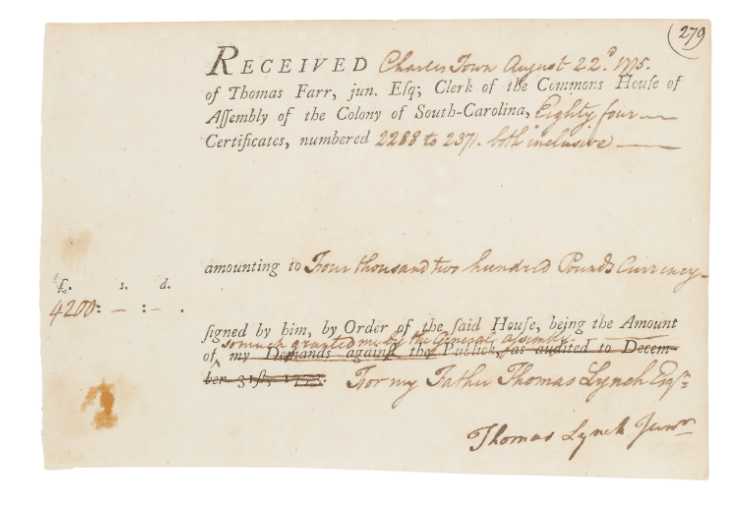 279
RECEIVED Charles Town August 22d. 1775.
of Thomas Farr, jun. Esq; Clerk of the Commons House of
Assembly of the Colony of South-Carolina, Eighty four
Certificates, numbered 2288 to 2371. both inclusive
amounting to Four thousand two hundred Pounds Currency
£. s. d.
4200: — : — .
signed by him, by Order of the said House, being the Amount
so much granted me by the General Assembly
of my Demands against the Publick, as audited to Decem-
ber 31st, 1773. For my Father Thomas Lynch Esqr
Thomas Lynch Junr